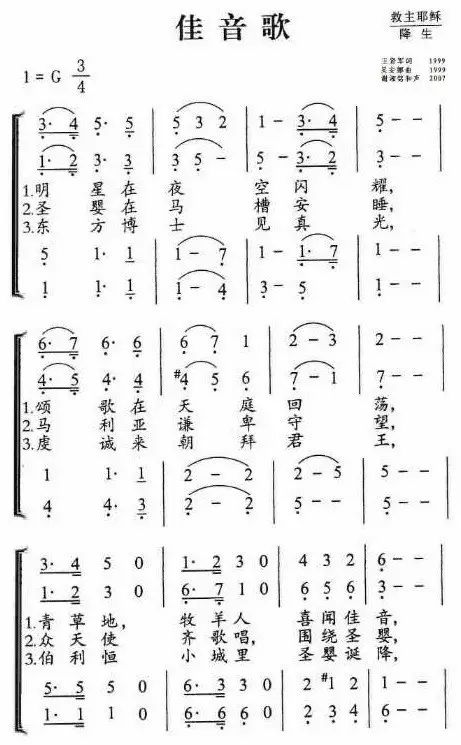 佳音歌
救主耶稣
降生
1 = G 3/4
1999
1999
2007
3· 4 5· 5 | 5 3 2 | 1 - 3· 4 | 5 - -
1· 2 3· 3 | 3 5 - | 5 - 3· 2 | 3 - -
1.明 星在 夜 空 闪 耀,
2.圣 婴在 马 槽 安 睡,
3.东 方博 士 见 真 光,
5 1· 1 | 1 - 7 | 1 - 1· 7 | 1 - -
1 1· 1 | 1 - 4 | 3 - 5 | 1 - -
6· 7 6· 6 | 6 7 1 | 2 - 3 | 2 - -
4· 5 4· 4 | #4 5 6 | 7 - 1 | 7 - -
1.颂 歌在 天 庭 回 荡,
2.马 利亚 谦 卑 守 望,
3.虔 诚来 朝 拜 君 王,
1 1· 1 | 2 - 2 | 2 - 5 | 5 - -
4 4· 3 | 2 - 2 | 5 - - | 5 - -
3· 4 5 0 | 1· 2 3 0 | 4 3 2 | 6 - -
1· 2 3 0 | 6· 7 1 0 | 6 5 6 | 6 - -
1.青 草 地, 牧 羊 人 喜 闻 佳 音,
2.众 天 使 齐 歌 唱, 围 绕 圣 婴,
3.伯 利 恒 小 城 里 圣 婴 诞 降,
5· 5 5 0 | 6· 3 3 0 | 2 #1 2 | 1 - -
1· 1 1 0 | 6· 6 6 0 | 2 3 4 | 6 - -